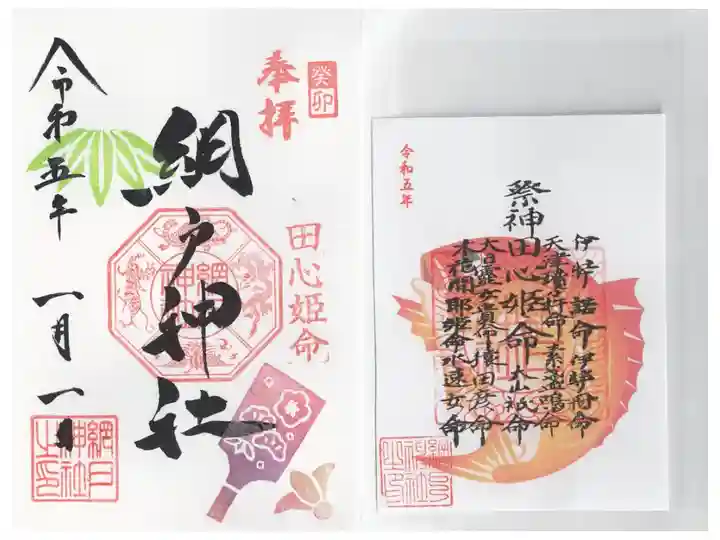 癸卯
奉拝
田心姫命
網戸神社
令和五年
一月一日
網戸
神社
之印
令和五年
祭神
田心姫命
伊弉諾命 伊弉冊命
天津瓊々杵命 素盞嗚命
大山祇命
大日孁女貴命 猿田彦命
木花開耶姫命 水速女命